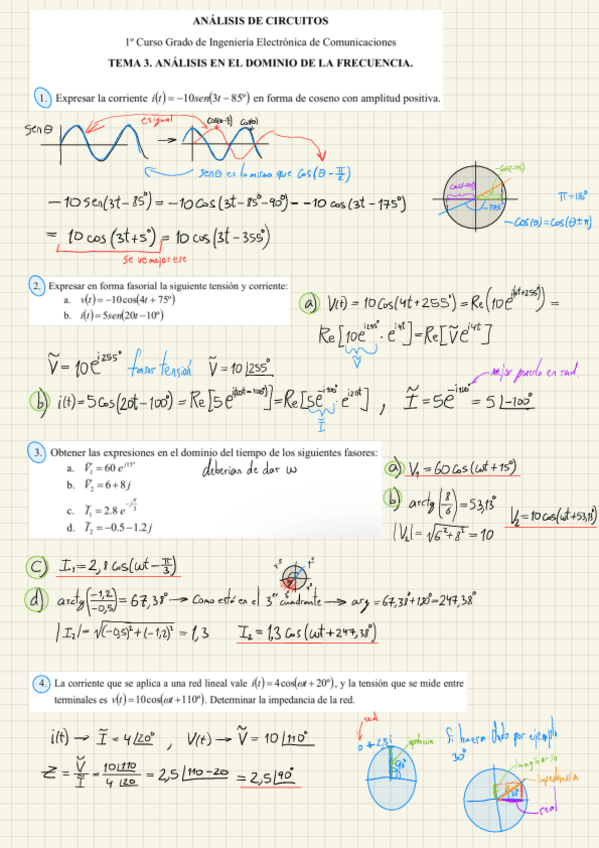 ANÁLISIS DE CIRCUITOS
1º Curso Grado de Ingeniería Electrónica de Comunicaciones
TEMA 3. ANÁLISIS EN EL DOMINIO DE LA FRECUENCIA.
1. Expresar la corriente i(t) = −10sen(3t − 85º) en forma de coseno con amplitud positiva.
es igual
senθ
Cos(θ)
senθ es lo mismo que Cos(θ − π/2)
π = 180°
−Cos(θ) = Cos(θ ± π)
−10 sen(3t − 85°) = −10 Cos(3t − 85° − 90°) = −10 cos(3t − 175°)
= 10 cos(3t + 5°) = 10 cos(3t − 355°)
se ve mejor ese
2. Expresar en forma fasorial la siguiente tensión y corriente:
a. v(t) = −10cos(4t + 75º)
b. i(t) = 5sen(20t − 10º)
a) V(t) = 10 Cos(4t + 255°) = Re(10e^j(4t+255°)) =
Re[10e^j255° · e^j4t] = Re[Ṽe^j4t]
Ṽ
Ṽ = 10e^j255° fasor tensión Ṽ = 10∠255°
mejor ponerlo en rad.
b) i(t) = 5Cos(20t − 100°) = Re[5e^j(20t−100°)] = Re[5e^−j100° · e^j20t] , Ĩ = 5e^−j100° = 5∠−100°
Ĩ
3. Obtener las expresiones en el dominio del tiempo de los siguientes fasores:
a. Ṽ₁ = 60 e^j15º
b. Ṽ₂ = 6 + 8j
c. Ĩ₁ = 2.8 e^−jπ/3
d. Ĩ₂ = −0.5 − 1.2j
deberian de dar w
a) V₁ = 60 Cos(ωt + 15°)
b) arctg(8/6) = 53,13°
|V₂| = √(6² + 8²) = 10
V₂ = 10 cos(ωt + 53,13°)
c) I₁ = 2,8 Cos(ωt − π/3)
d) arctg(−1,2/−0,5) = 67,38° → Como está en el 3er cuadrante → arg = 67,38° + 180° = 247,38°
|I₂| = √((−0,5)² + (−1,2)²) = 1,3 I₂ = 1,3 Cos(ωt + 247,38°)
4. La corriente que se aplica a una red lineal vale i(t) = 4cos(ωt + 20º), y la tensión que se mide entre
terminales es v(t) = 10cos(ωt + 110º). Determinar la impedancia de la red.
i(t) → Ĩ = 4∠20° , V(t) → Ṽ = 10∠110°
Z = Ṽ/Ĩ = 10∠110/4∠20 = 2,5∠110−20 = 2,5∠90°
real
0 + 2,5j
90°
Si hubiera dado por ejemplo
30°
imaginario
impedancia
real